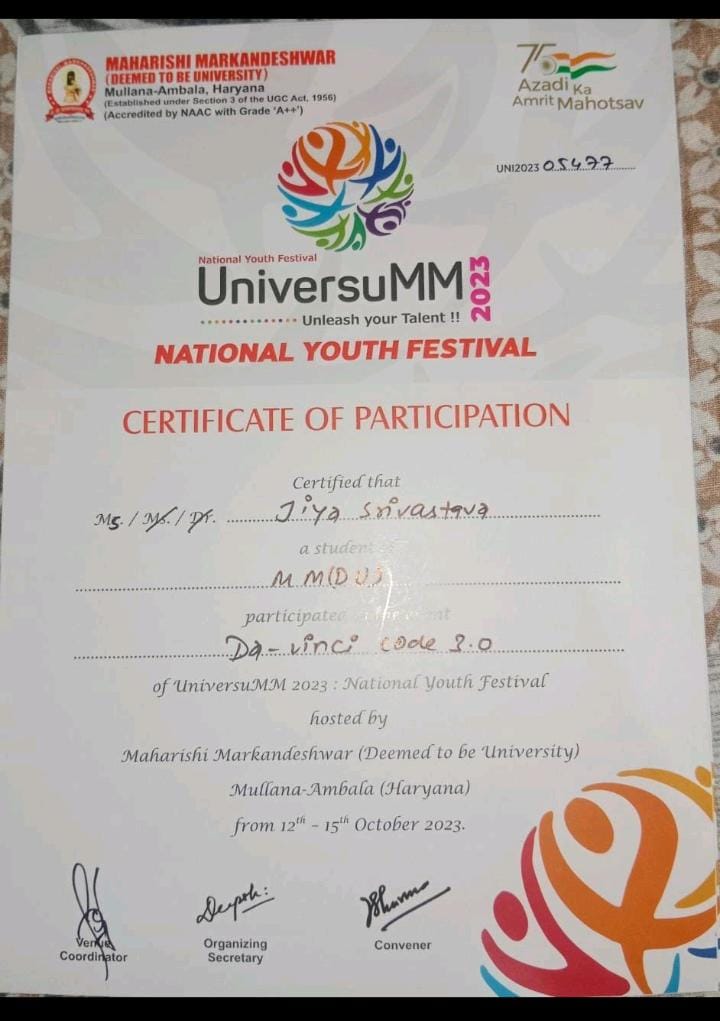 MAHARISHI MARKANDESHWAR
(DEEMED TO BE UNIVERSITY)
Mullana-Ambala, Haryana
(Established under Section 3 of the UGC Act, 1956)
(Accredited by NAAC with Grade 'A++')
75
Azadi Ka
Amrit Mahotsav
UNI2023 05477
National Youth Festival
UniversuMM 2023
Unleash your Talent !!
NATIONAL YOUTH FESTIVAL
CERTIFICATE OF PARTICIPATION
Certified that
Ms. / Ms. / Dr. Jiya Srivastava
a student of
M M(D U)
participated in the event
Da-vinci code 3.0
of UniversuMM 2023 : National Youth Festival
hosted by
Maharishi Markandeshwar (Deemed to be University)
Mullana-Ambala (Haryana)
from 12th - 15th October 2023.
Venue Coordinator
Organizing Secretary
Convener